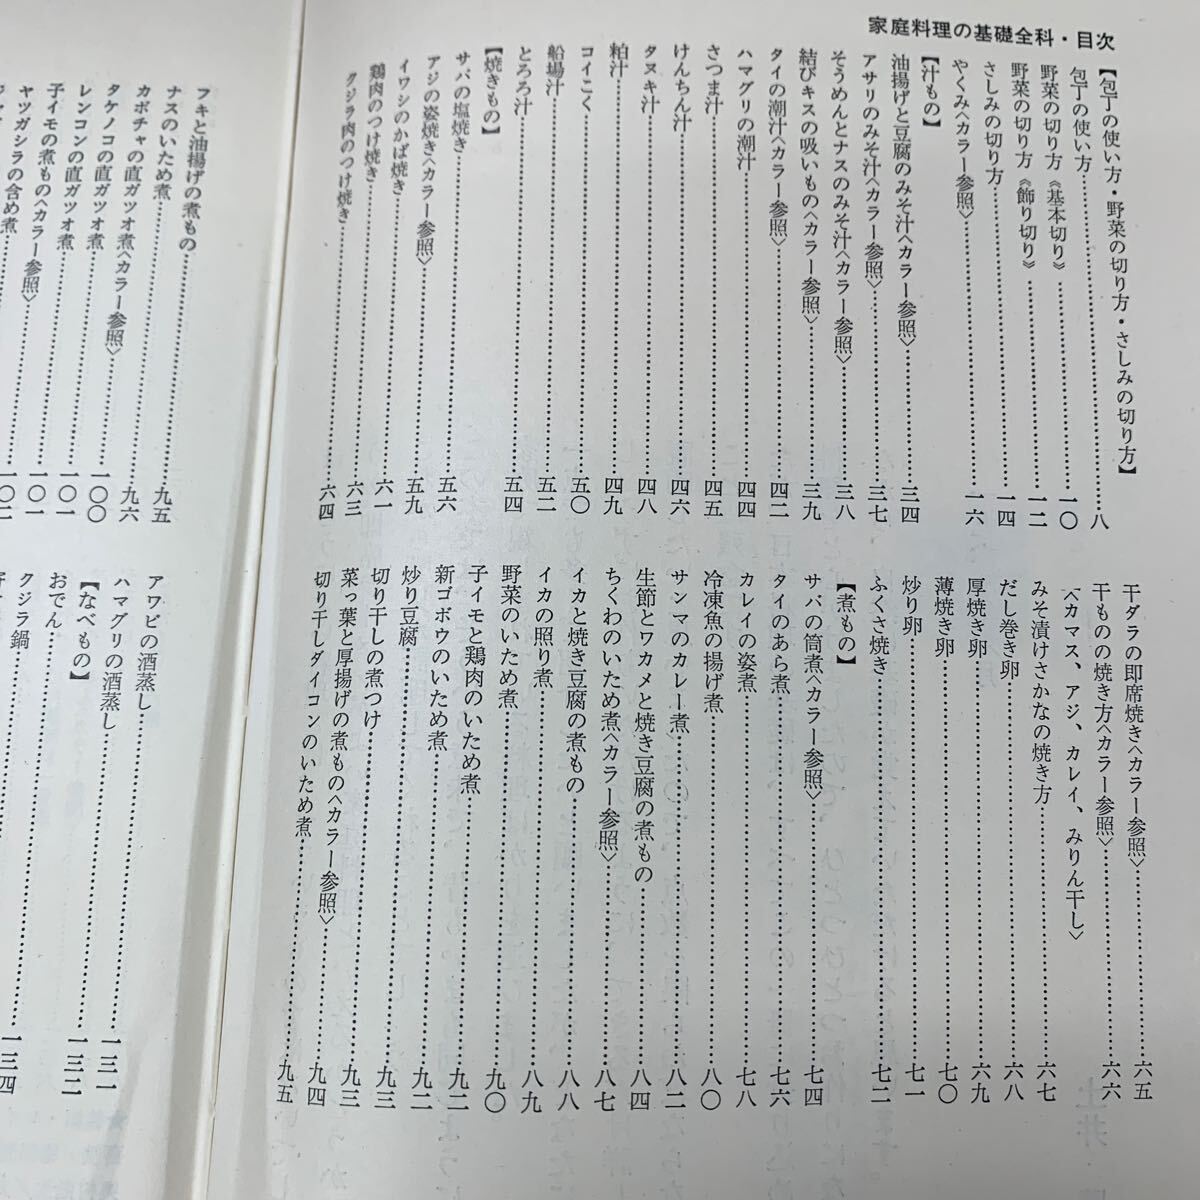 家庭料理の基礎全科・目次
【包丁の使い方・野菜の切り方・さしみの切り方】
包丁の使い方……八
野菜の切り方《基本切り》……一〇
野菜の切り方《飾り切り》……一二
さしみの切り方……一四
やくみ〈カラー参照〉……一六
【汁もの】
油揚げと豆腐のみそ汁〈カラー参照〉……三四
アサリのみそ汁〈カラー参照〉……三七
そうめんとナスのみそ汁〈カラー参照〉……三八
結びキスの吸いもの〈カラー参照〉……三九
タイの潮汁〈カラー参照〉……四二
ハマグリの潮汁……四四
さつま汁……四五
けんちん汁……四六
タヌキ汁……四八
粕汁……四九
コイこく……五〇
船場汁……五二
とろろ汁……五四
【焼きもの】
サバの塩焼き……五六
アジの姿焼き〈カラー参照〉……五九
イワシのかば焼き……六一
鶏肉のつけ焼き……六三
クジラ肉のつけ焼き……六四
干ダラの即席焼き〈カラー参照〉……六五
干ものの焼き方〈カラー参照〉……六六
〈カマス、アジ、カレイ、みりん干し〉
みそ漬けさかなの焼き方……六七
だし巻き卵……六八
厚焼き卵……六九
薄焼き卵……七〇
炒り卵……七一
ふくさ焼き……七二
【煮もの】
サバの筒煮〈カラー参照〉……七四
タイのあら煮……七六
カレイの姿煮……七八
冷凍魚の揚げ煮……八〇
サンマのカレー煮……八二
生節とワカメと焼き豆腐の煮もの……八四
ちくわのいため煮〈カラー参照〉……八七
イカと焼き豆腐の煮もの……八八
イカの照り煮……八九
野菜のいため煮……九〇
子イモと鶏肉のいため煮……九二
新ゴボウのいため煮……九二
炒り豆腐……九二
切り干しの煮つけ……九三
菜っ葉と厚揚げの煮もの〈カラー参照〉……九四
切り干しダイコンのいため煮……九五
フキと油揚げの煮もの……九五
ナスのいため煮……九六
カボチャの直ガツオ煮〈カラー参照〉……一〇〇
タケノコの直ガツオ煮……一〇〇
レンコンの直ガツオ煮……一〇一
子イモの煮もの〈カラー参照〉……一〇一
ヤツガシラの含め煮……一〇二
アワビの酒蒸し……一三一
ハマグリの酒蒸し……一三二
【なべもの】
おでん……一三四
クジラ鍋